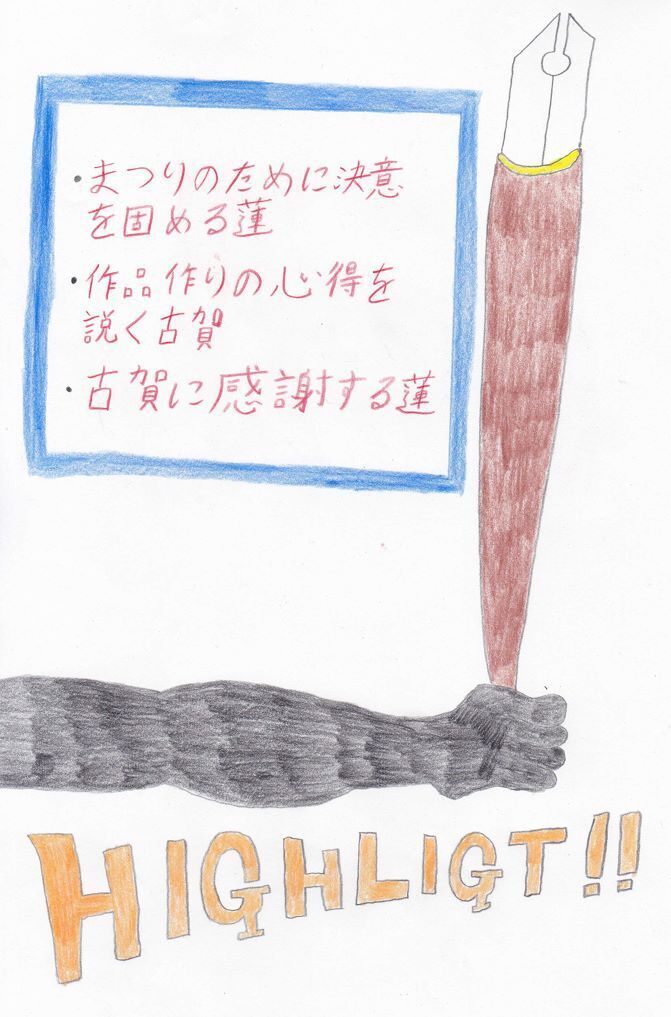 ・まつりのために決意
を固める蓮
・作品作りの心得を
説く古賀
・古賀に感謝する蓮
HIGHLIGT!!